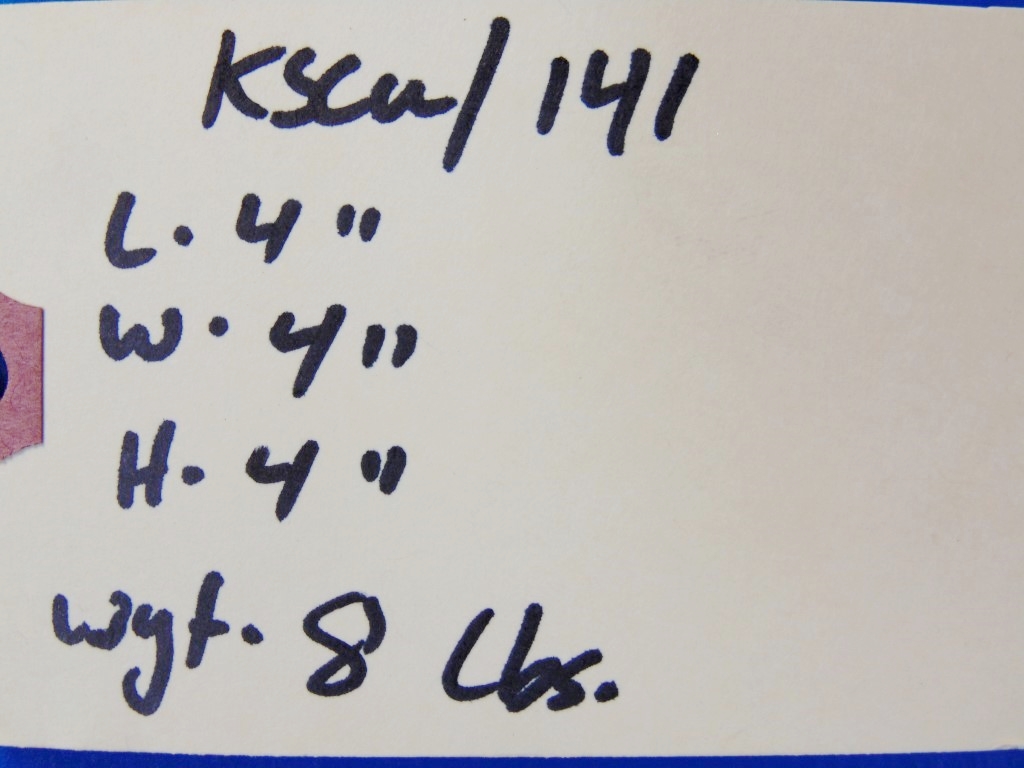 KSCU/141
L. 4"
W. 4"
H. 4"
Wgt. 8 Lbs.